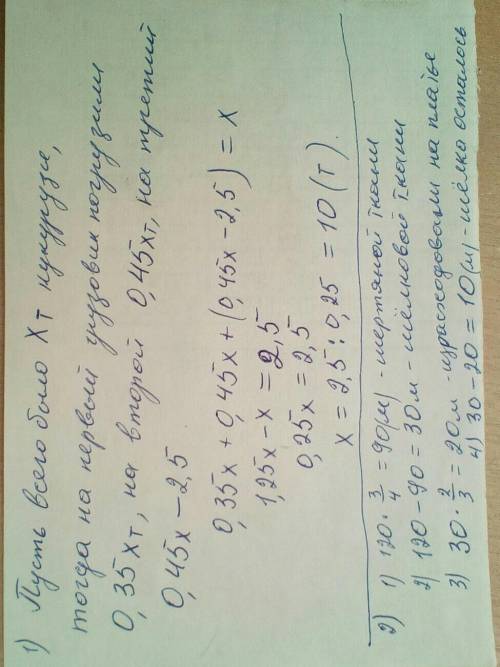 1) Пусть всего было x т кукурузы,
тогда на первый грузовик погрузили
0,35x т, на второй 0,45x т, на третий
0,45x - 2,5
0,35x + 0,45x + (0,45x - 2,5) = x
1,25x - x = 2,5
0,25x = 2,5
x = 2,5 : 0,25 = 10 (т).
2) 1) 120 · 3/4 = 90(м) - шертяной ткани
2) 120 - 90 = 30 м - шёлковой ткани
3) 30 · 2/3 = 20 м - израсходовали на платье
4) 30 - 20 = 10 (м) - шёлка осталось